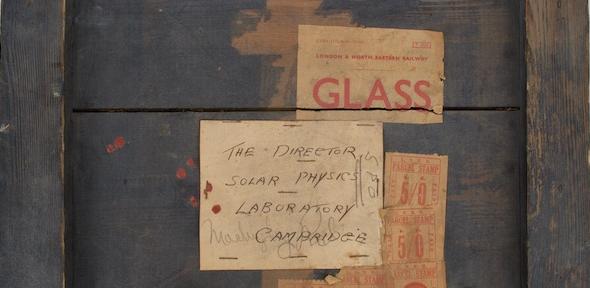 LONDON & NORTH EASTERN RAILWAY
GLASS
THE DIRECTOR
SOLAR PHYSICS
LABORATORY
CAMBRIDGE
PARCEL STAMP
5/0
PARCEL STAMP
5/0